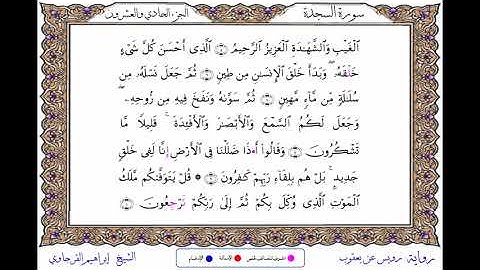 سورة السجدة
الجزء الحادي والعشرون
ٱلْغَيْبِ وَٱلشَّهَٰدَةِ ٱلْعَزِيزُ ٱلرَّحِيمُ ۝ ٱلَّذِىٓ أَحْسَنَ كُلَّ شَىْءٍ
خَلْقَهُۥ ۖ وَبَدَأَ خَلْقَ ٱلْإِنسَٰنِ مِن طِينٍ ۝ ثُمَّ جَعَلَ نَسْلَهُۥ مِن
سُلَٰلَةٍ مِّن مَّآءٍ مَّهِينٍ ۝ ثُمَّ سَوَّىٰهُ وَنَفَخَ فِيهِ مِن رُّوحِهِۦ ۖ
وَجَعَلَ لَكُمُ ٱلسَّمْعَ وَٱلْأَبْصَٰرَ وَٱلْأَفْـِٔدَةَ ۚ قَلِيلًا مَّا
تَشْكُرُونَ ۝ وَقَالُوٓا۟ أَءِذَا ضَلَلْنَا فِى ٱلْأَرْضِ إِنَّا لَفِى خَلْقٍ
جَدِيدٍ ۚ بَلْ هُم بِلِقَآءِ رَبِّهِمْ كَٰفِرُونَ ۝ ۞ قُلْ يَتَوَفَّىٰكُم مَّلَكُ
ٱلْمَوْتِ ٱلَّذِى وُكِّلَ بِكُمْ ثُمَّ إِلَىٰ رَبِّكُمْ تَرْجِعُونَ ۝
رواية رويس عن يعقوب
الإمالة
الإدغام
الشيخ إبراهيم القرجاوي